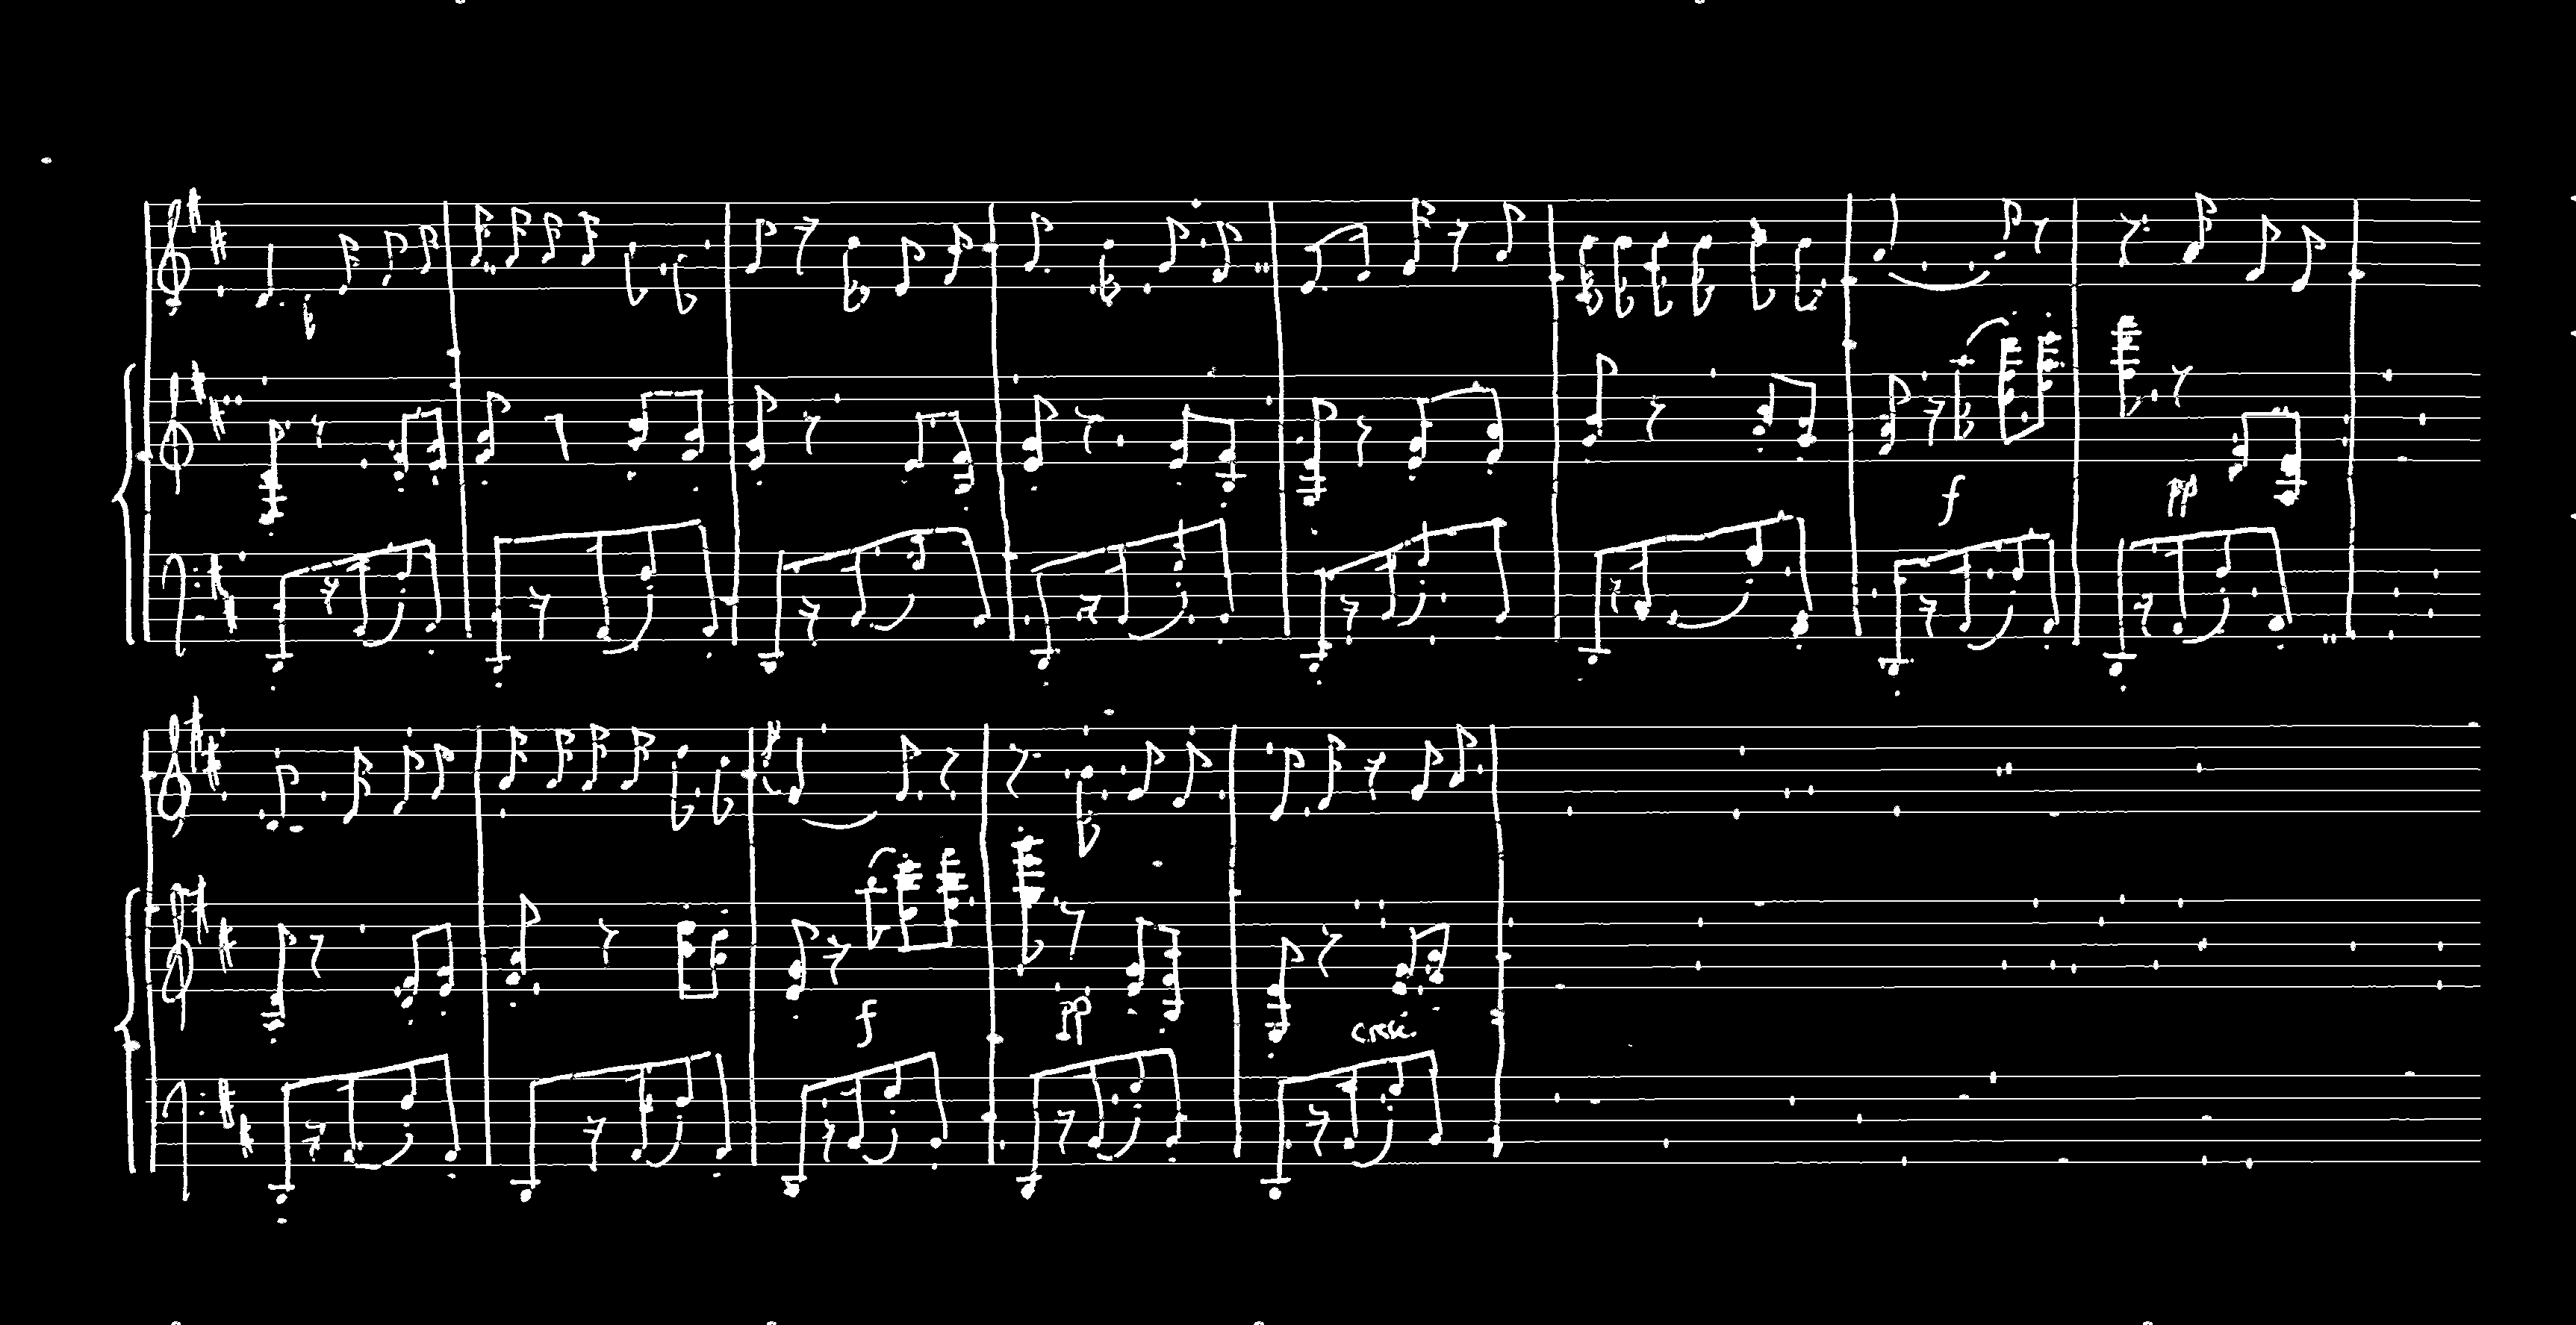 f pp
f pp cresc.